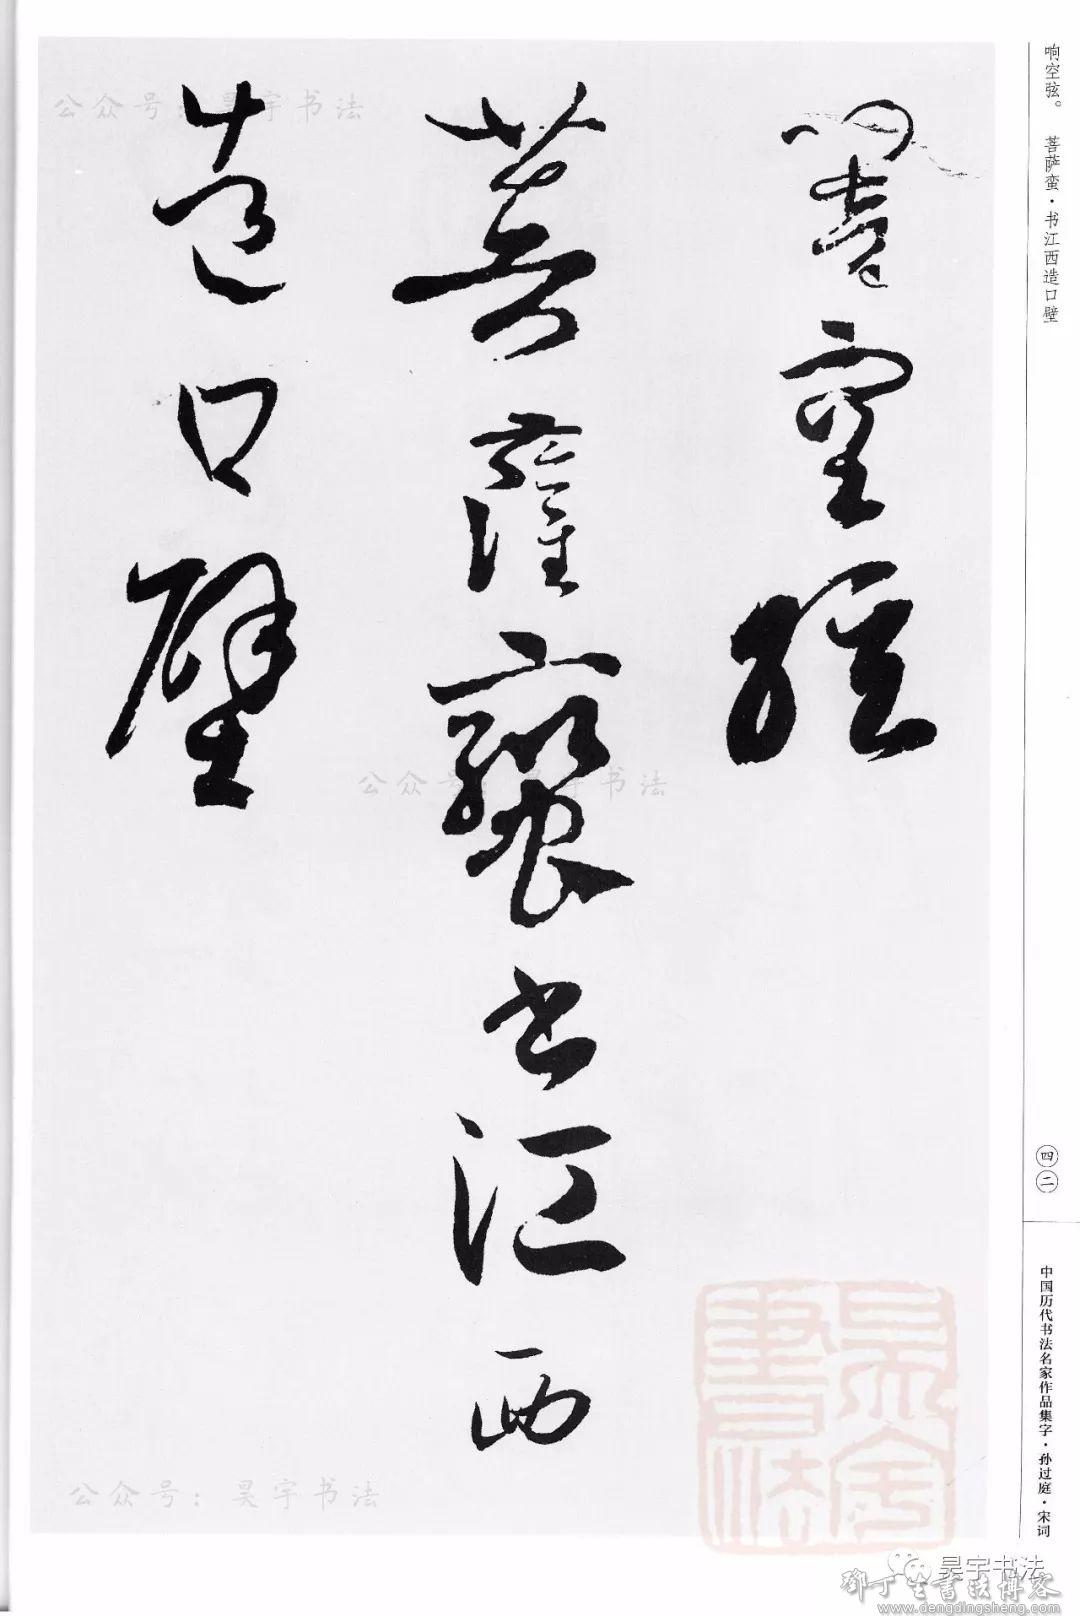 响空弦。 菩萨蛮·书江西造口壁
響空弦
菩薩蠻书江西
造口壁
四二
中国历代书法名家作品集字·孙过庭·宋词
公众号：昊宇书法
公众号：昊宇书法
公众号：昊宇书法
昊宇書法
昊宇书法
鄧丁生書法博客
www.dengdingsheng.com